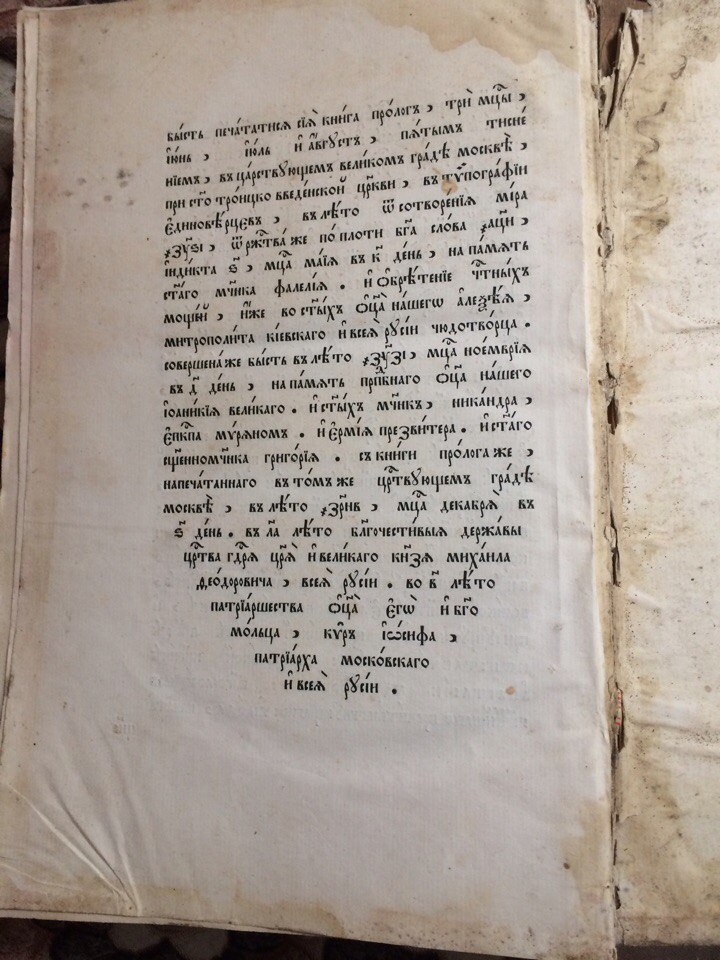 бы́сть печа́татисѧ сїѧ̀ кни́га про́логъ, трѝ мⷭ҇цы,
і҆ю́нь, і҆ю́ль и҆ а҆́ѵгꙋстъ, пѧ́тымъ тисне́
нїемъ, въ ца́рствꙋющемъ вели́комъ гра́дѣ москвѣ̀,
при ст҃о тро́ицко введе́нской цр҃кви, въ тѷпогра́фїи
є҆диновѣ́рцєвъ, въ лѣ́то ѿ сотворе́нїѧ мі́ра
ѿ ржⷭ҇тва́ же по пло́ти бг҃а сло́ва
і҆нді́кта мцⷭ҇а ма́їѧ въ к҃ де́нь, на па́мѧть
ст҃а́гѡ мч҃ника фалеле́ѧ. и҆ ѡ҆брѣ́тенїе чⷭ҇тны́хъ
моще́й, и҆́же во ст҃ы́хъ ѻ҆ц҃а̀ на́шегѡ а҆леѯі́ѧ,
митрополи́та кі́евскаго и҆ всеѧ̀ рꙋсі́и чюдотво́рца.
соверше́на же бы́сть въ лѣ́то мцⷭ҇а ное́мврїѧ
въ д҃ де́нь, на па́мѧть прⷣпбнаго ѻ҆ц҃а̀ на́шего
і҆оанни́кїѧ вели́каго. и҆ ст҃ы́хъ мч҃никъ, ника́ндра,
є҆пⷭ҇кпа мѵ́рѧномъ. и҆ є҆рмі́ѧ презви́тера. и҆ ст҃а́го
сщ҃енномч҃ника григо́рїѧ. съ кни́ги про́лога же,
напеча́таннаго въ то́мъ же црⷭ҇твꙋющемъ гра́дѣ
москвѣ̀, въ лѣ́то ҂зрн҃в, мцⷭ҇а декабрѧ̀ въ
ѕ҃ де́нь. въ л҃а лѣ́то бл҃гочести́выѧ держа́вы
црⷭ҇тва гдⷭ҇рѧ цр҃ѧ̀ и҆ вели́каго кн҃зѧ миха́ила
ѳео́дѡровича, всеѧ̀ рꙋсі́и. во в҃ лѣ́то
патрїа́ршества ѻ҆ц҃а̀ є҆гѡ̀ и҆ бг҃о
мо́льца, кѵ́ръ і҆ѡ́сифа,
патрїа́рха моско́вскаго
и҆ всеѧ̀ рꙋсі́и.